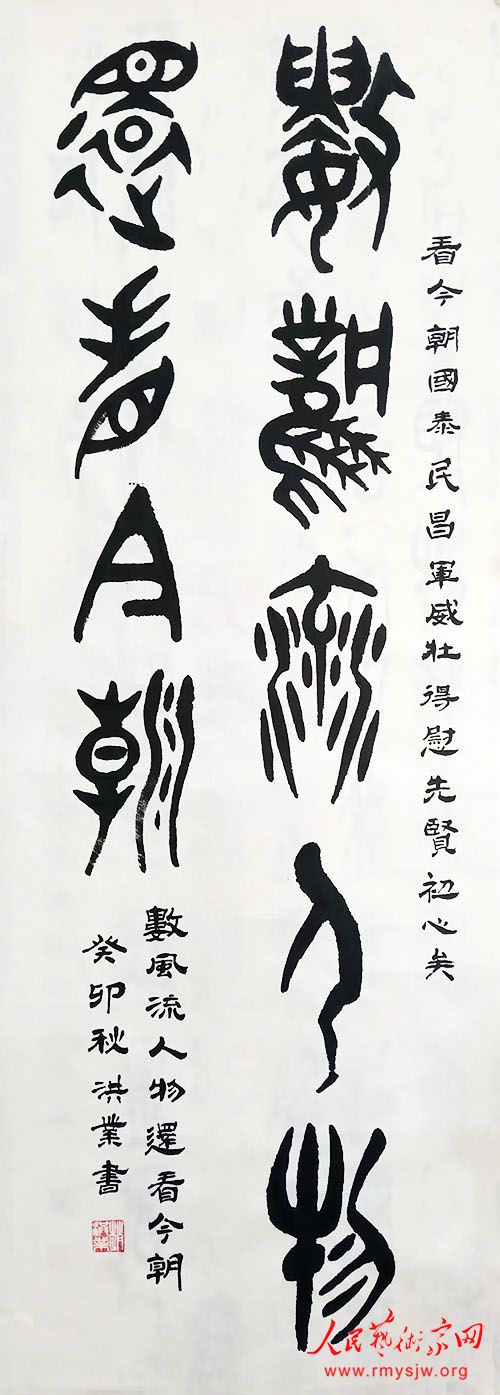 看今朝國泰民昌軍威壯得慰先賢初心矣
數風流人物
還看今朝
數風流人物還看今朝
癸卯秋洪業書
人民艺术家网
www.rmysjw.org